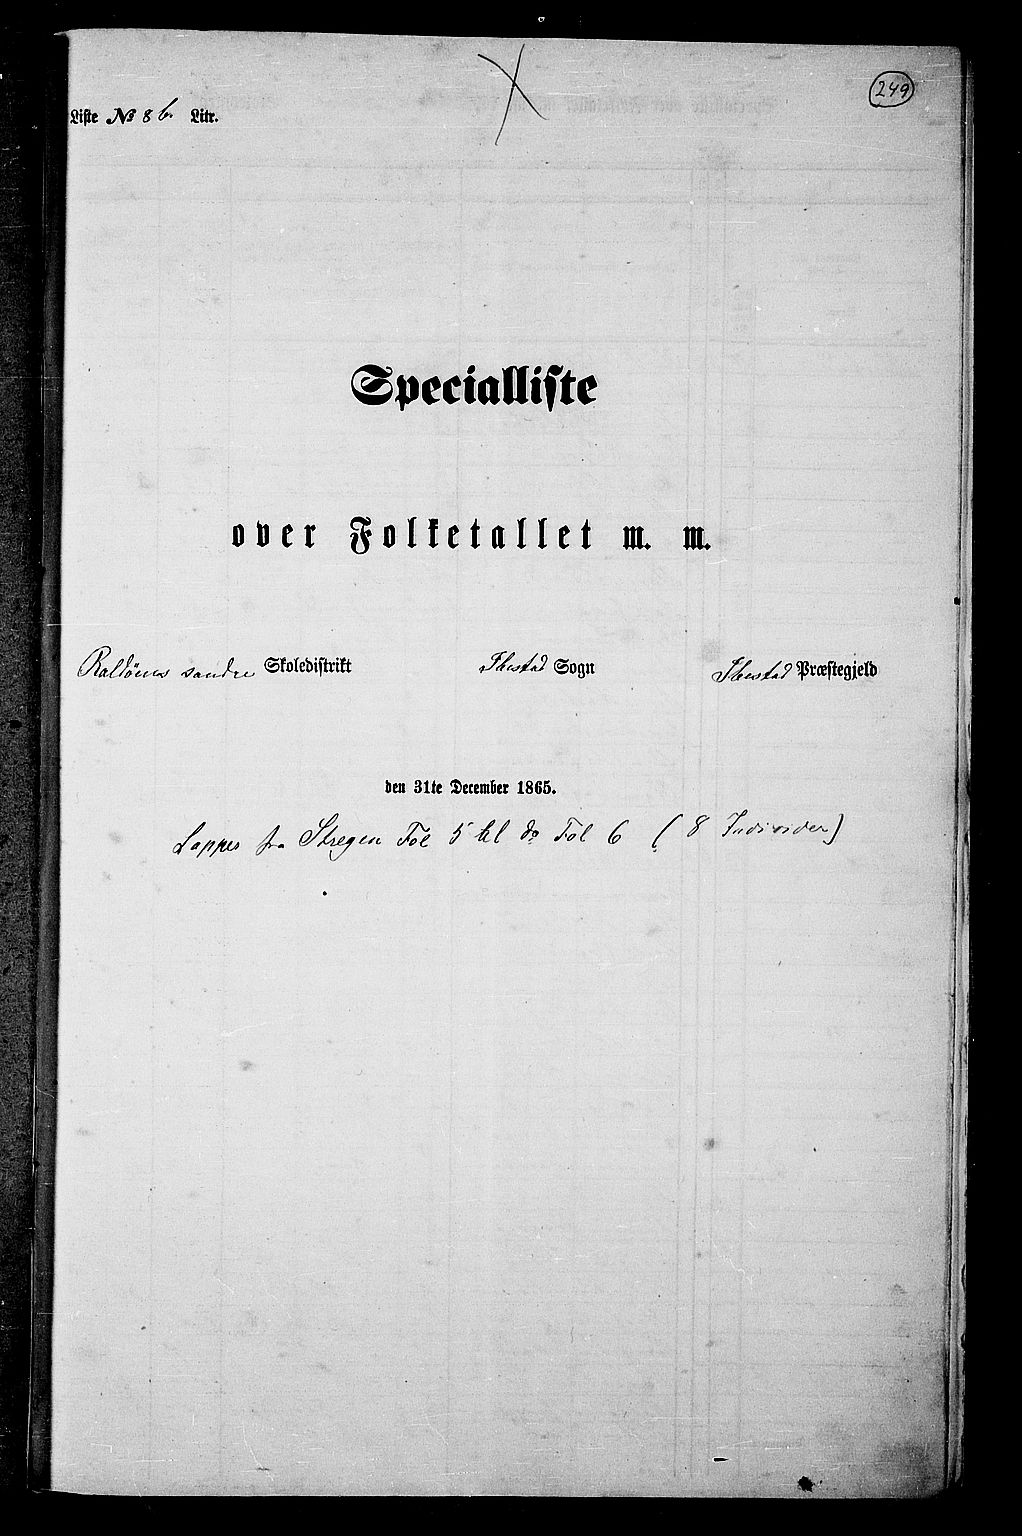 249
Liste № 8 b. Litr.
Specialliste
over Folketallet m. m.
søndre Skoledistrikt Ibestad Sogn Ibestad Præstegjeld
den 31te December 1865.
Lapper fra Stregen Fol 5 til do Fol 6 (8 Individer)